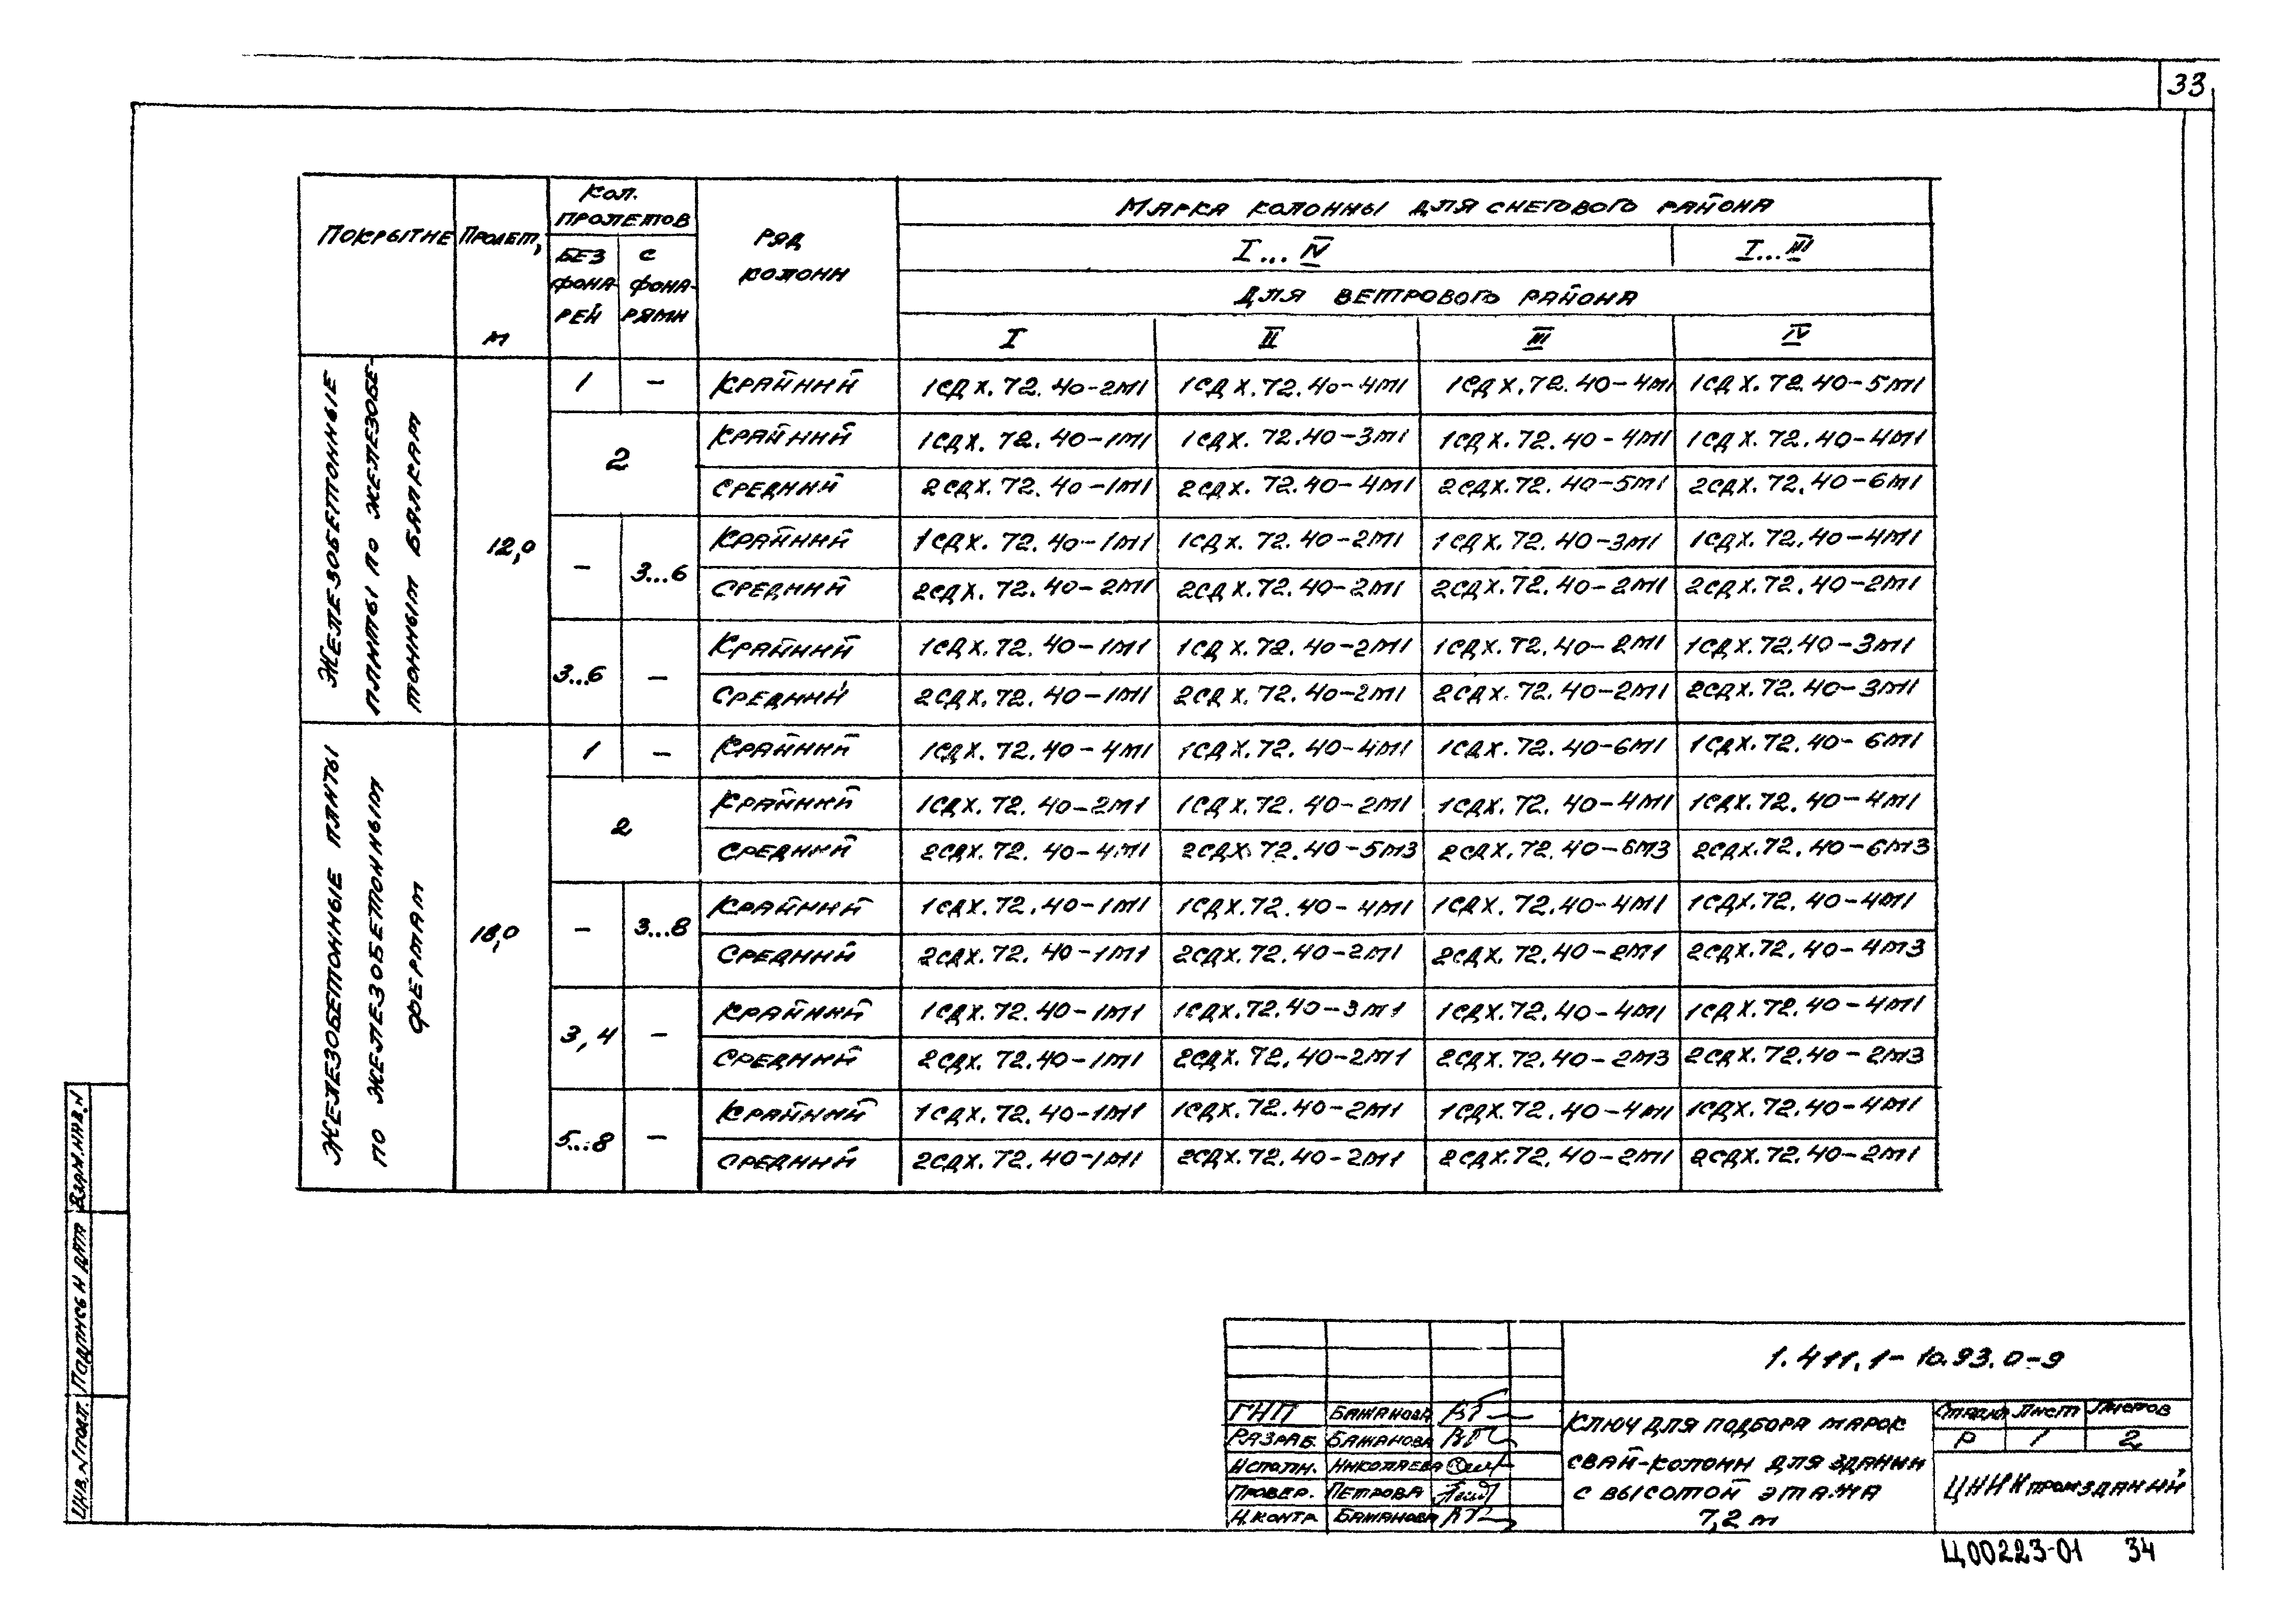 33
Покрытие
Пролет, м
Кол. пролетов
без фона-рей
с фона-рями
Ряд колонн
Марка колонны для снегового района
I...IV
I...III
для ветрового района
I II III IV
Железобетонные плиты по железобе-тонным балкам
12,0
1 – Крайний 1СДХ.72.40-2М1 1СДХ.72.40-4М1 1СДХ.72.40-4М1 1СДХ.72.40-5М1
2 Крайний 1СДХ.72.40-1М1 1СДХ.72.40-3М1 1СДХ.72.40-4М1 1СДХ.72.40-4М1
Средний 2СДХ.72.40-1М1 2СДХ.72.40-4М1 2СДХ.72.40-5М1 2СДХ.72.40-6М1
– 3...6 Крайний 1СДХ.72.40-1М1 1СДХ.72.40-2М1 1СДХ.72.40-3М1 1СДХ.72.40-4М1
Средний 2СДХ.72.40-2М1 2СДХ.72.40-2М1 2СДХ.72.40-2М1 2СДХ.72.40-2М1
3...6 – Крайний 1СДХ.72.40-1М1 1СДХ.72.40-2М1 1СДХ.72.40-2М1 1СДХ.72.40-3М1
Средний 2СДХ.72.40-1М1 2СДХ.72.40-2М1 2СДХ.72.40-2М1 2СДХ.72.40-3М1
Железобетонные плиты по железобетонным фермам
18,0
1 – Крайний 1СДХ.72.40-4М1 1СДХ.72.40-4М1 1СДХ.72.40-6М1 1СДХ.72.40-6М1
2 Крайний 1СДХ.72.40-2М1 1СДХ.72.40-2М1 1СДХ.72.40-4М1 1СДХ.72.40-4М1
Средний 2СДХ.72.40-4М1 2СДХ.72.40-5М3 2СДХ.72.40-6М3 2СДХ.72.40-6М3
– 3...8 Крайний 1СДХ.72.40-1М1 1СДХ.72.40-4М1 1СДХ.72.40-4М1 1СДХ.72.40-4М1
Средний 2СДХ.72.40-1М1 2СДХ.72.40-2М1 2СДХ.72.40-2М1 2СДХ.72.40-4М3
3,4 – Крайний 1СДХ.72.40-1М1 1СДХ.72.40-3М1 1СДХ.72.40-4М1 1СДХ.72.40-4М1
Средний 2СДХ.72.40-1М1 2СДХ.72.40-2М1 2СДХ.72.40-2М3 2СДХ.72.40-2М3
5...8 – Крайний 1СДХ.72.40-1М1 1СДХ.72.40-2М1 1СДХ.72.40-4М1 1СДХ.72.40-4М1
Средний 2СДХ.72.40-1М1 2СДХ.72.40-2М1 2СДХ.72.40-2М1 2СДХ.72.40-2М1
Взам.инв.N
Подпись и дата
Инв.N подл.
1.411.1-10.93.0-9
ГИП Бажанова
Разраб. Бажанова
Исполн. Николаева
Провер. Петрова
Н.контр Бажанова
Ключ для подбора марок
свай-колонн для здания
с высотой этажа
7,2 м
Стадия Лист Листов
Р 1 2
ЦНИИпромзданий
Ц00223-01 34